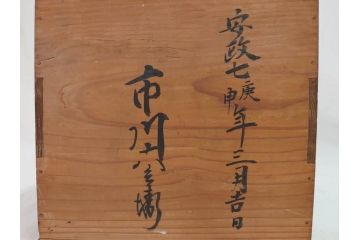 安政七庚申年三月吉日
市川六兵衛